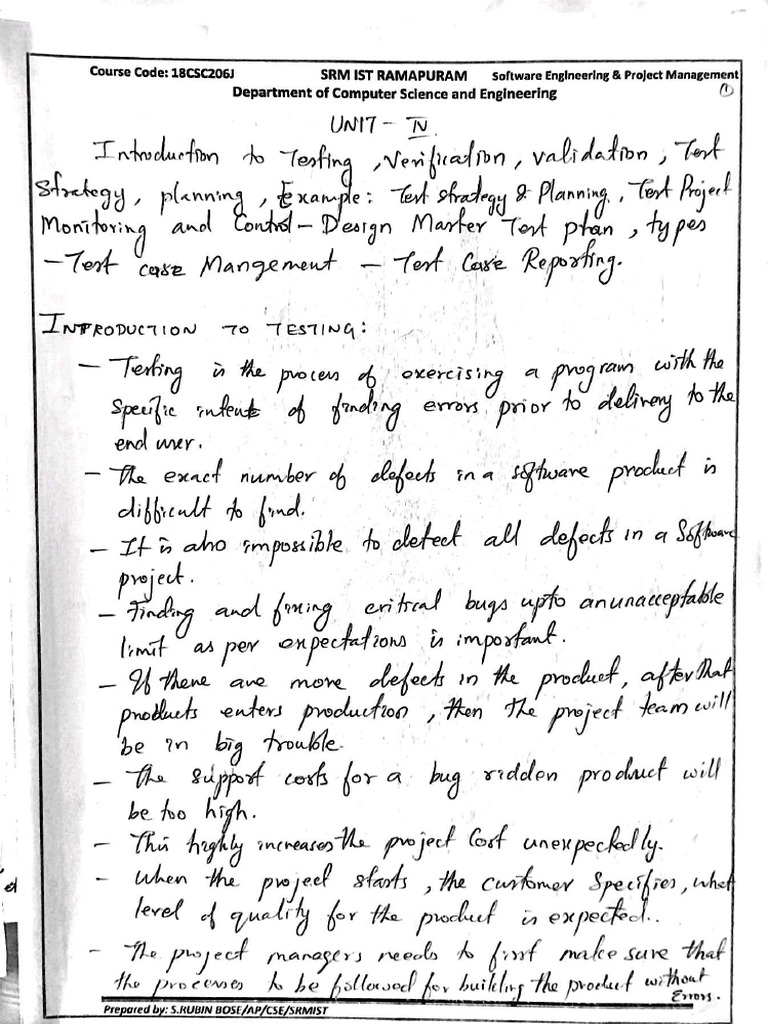 Course Code: 18CSC206J SRM IST RAMAPURAM Software Engineering & Project Management
Department of Computer Science and Engineering
1
UNIT - IV
Introduction to Testing, Verification, validation, Test
Strategy, planning, Example: Test strategy & Planning, Test Project
Monitoring and Control - Design Master Test plan, types
- Test case Mangement - Test Case Reporting.
INTRODUCTION TO TESTING:
- Testing is the process of exercising a program with the
specific intent of finding errors prior to delivery to the
end user.
- The exact number of defects in a software product is
difficult to find.
- It is also impossible to detect all defects in a Software
project.
- Finding and fixing critical bugs upto an unacceptable
limit as per expectations is important.
- If there are more defects in the product, after that
products enters production, then the project team will
be in big trouble.
- The support costs for a bug ridden product will
be too high.
- This highly increases the project Cost unexpectedly.
- When the project starts, the customer Specifies, what
level of quality for the product is expected..
- The project managers needs to first make sure that
the processes to be followed for building the product without
Errors.
Prepared by: S.RUBIN BOSE/AP/CSE/SRMIST